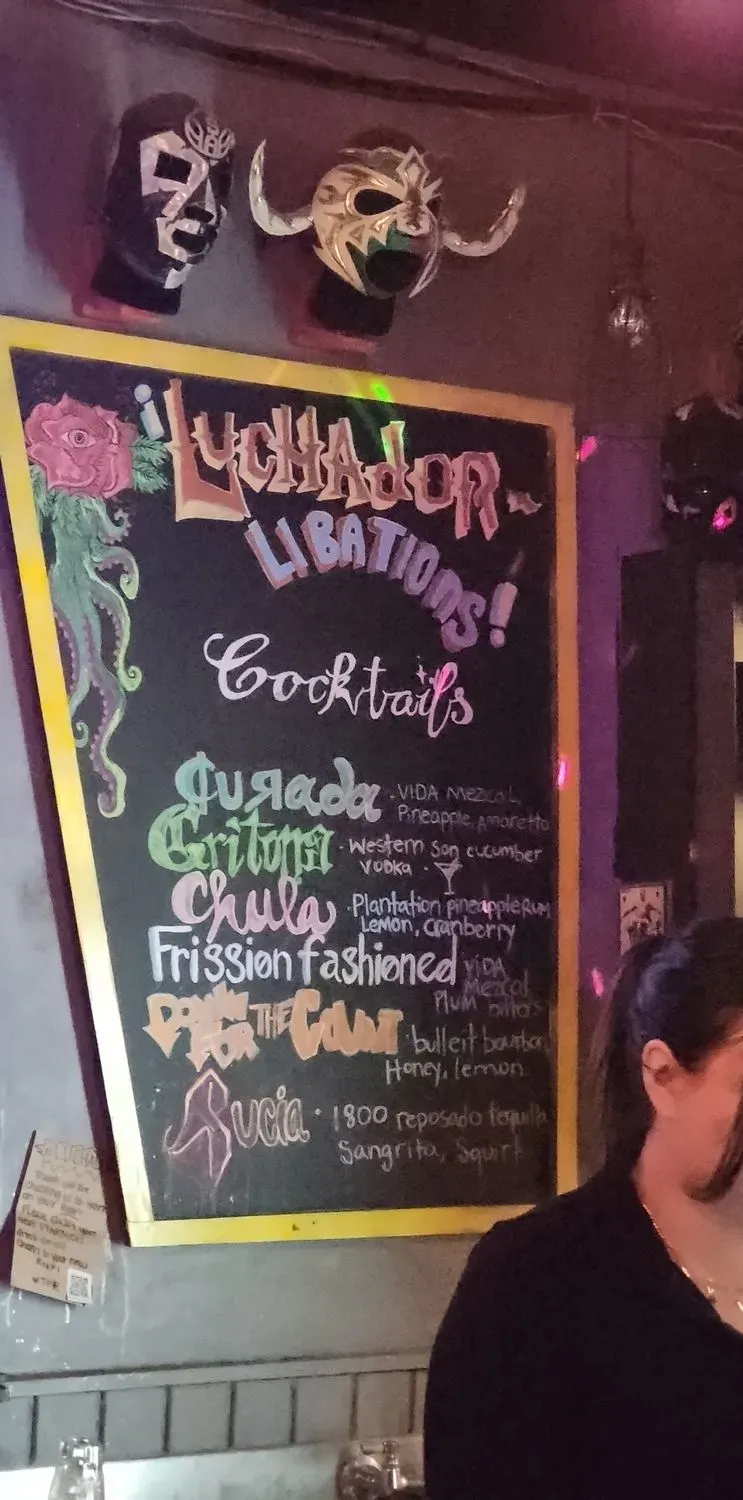 ¡LUCHADOR
LIBATIONS!
Cocktails
Curada · VIDA Mezcal,
Pineapple, Amaretto
Gritona · Western Son cucumber
vodka ·
Chula · Plantation pineapple Rum
Lemon, Cranberry
Frission fashioned VIDA
Mezcal
Plum bitters
DOWN FOR THE COUNT · bulleit bourbon,
Honey, lemon
Sucia · 1800 reposado tequila
Sangrita, Squirt